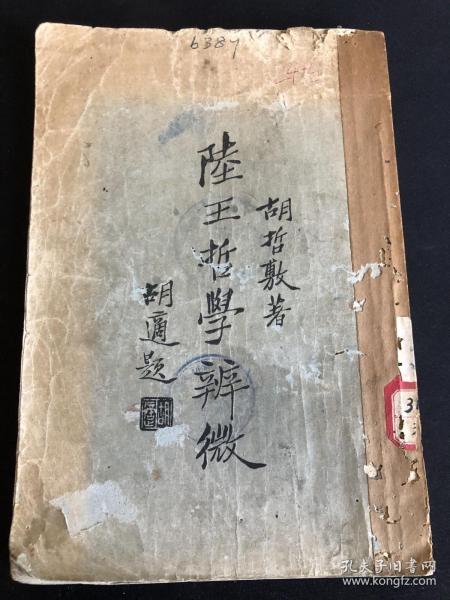 6387
胡哲敷著
陸王哲學辨微
胡適題
孔夫子旧书网
www.kongfz.com